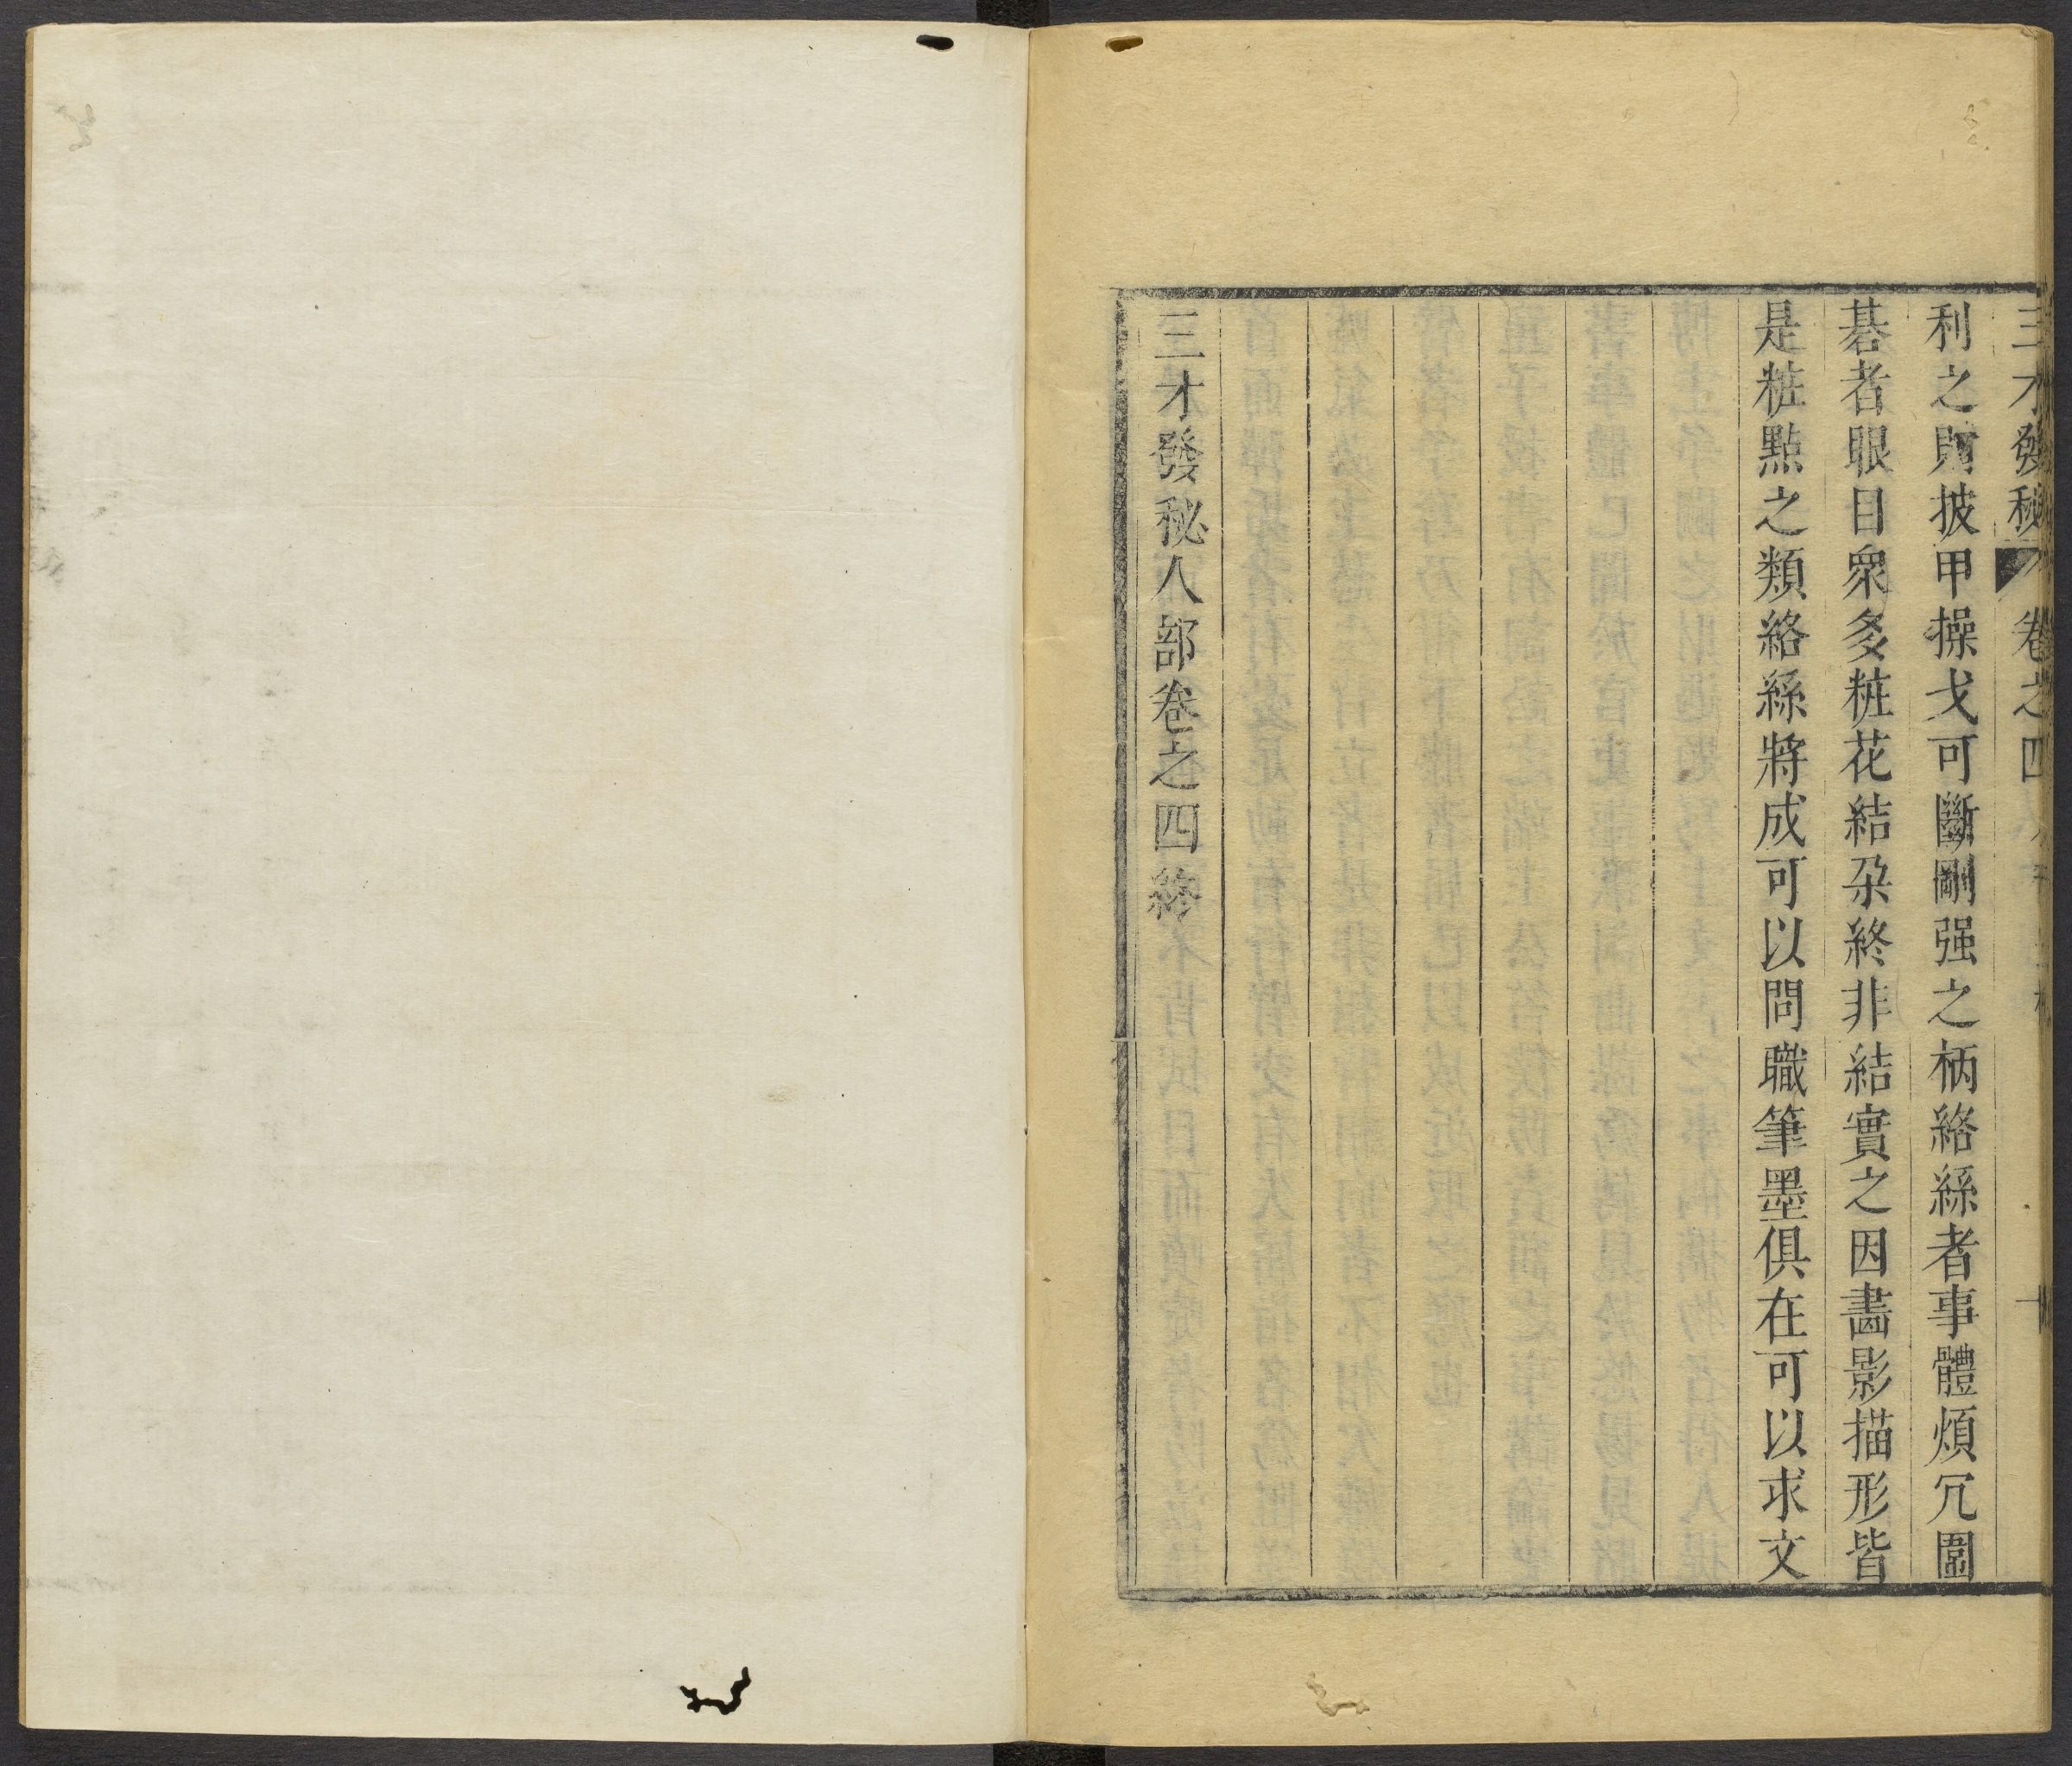 三才發秘 卷之四
利之財披甲操戈可斷剛强之柄絡絲者事體煩冗圍
碁者眼目衆多粧花結朶終非結實之因畵影描形皆
是粧點之類絡絲將成可以問職筆墨俱在可以求文
三才發秘人部卷之四終